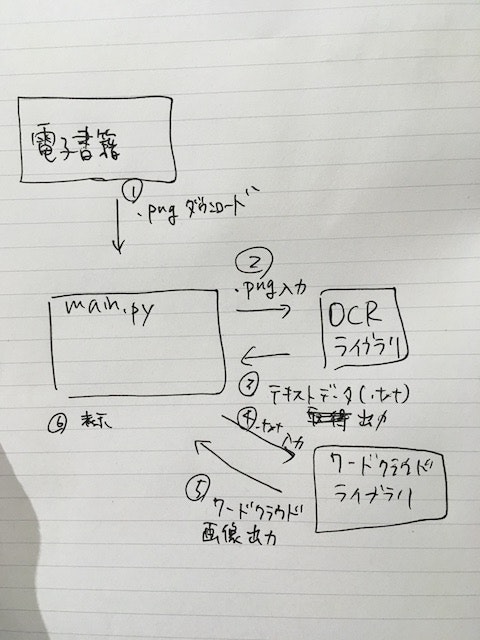 電子書籍
①
.png ダウンロード
main.py
②
.png 入力
OCR
ライブラリ
③
テキストデータ(.txt)
出力
④ .txt
入力
⑥ 表示
ワードクラウド
ライブラリ
⑤
ワードクラウド
画像出力